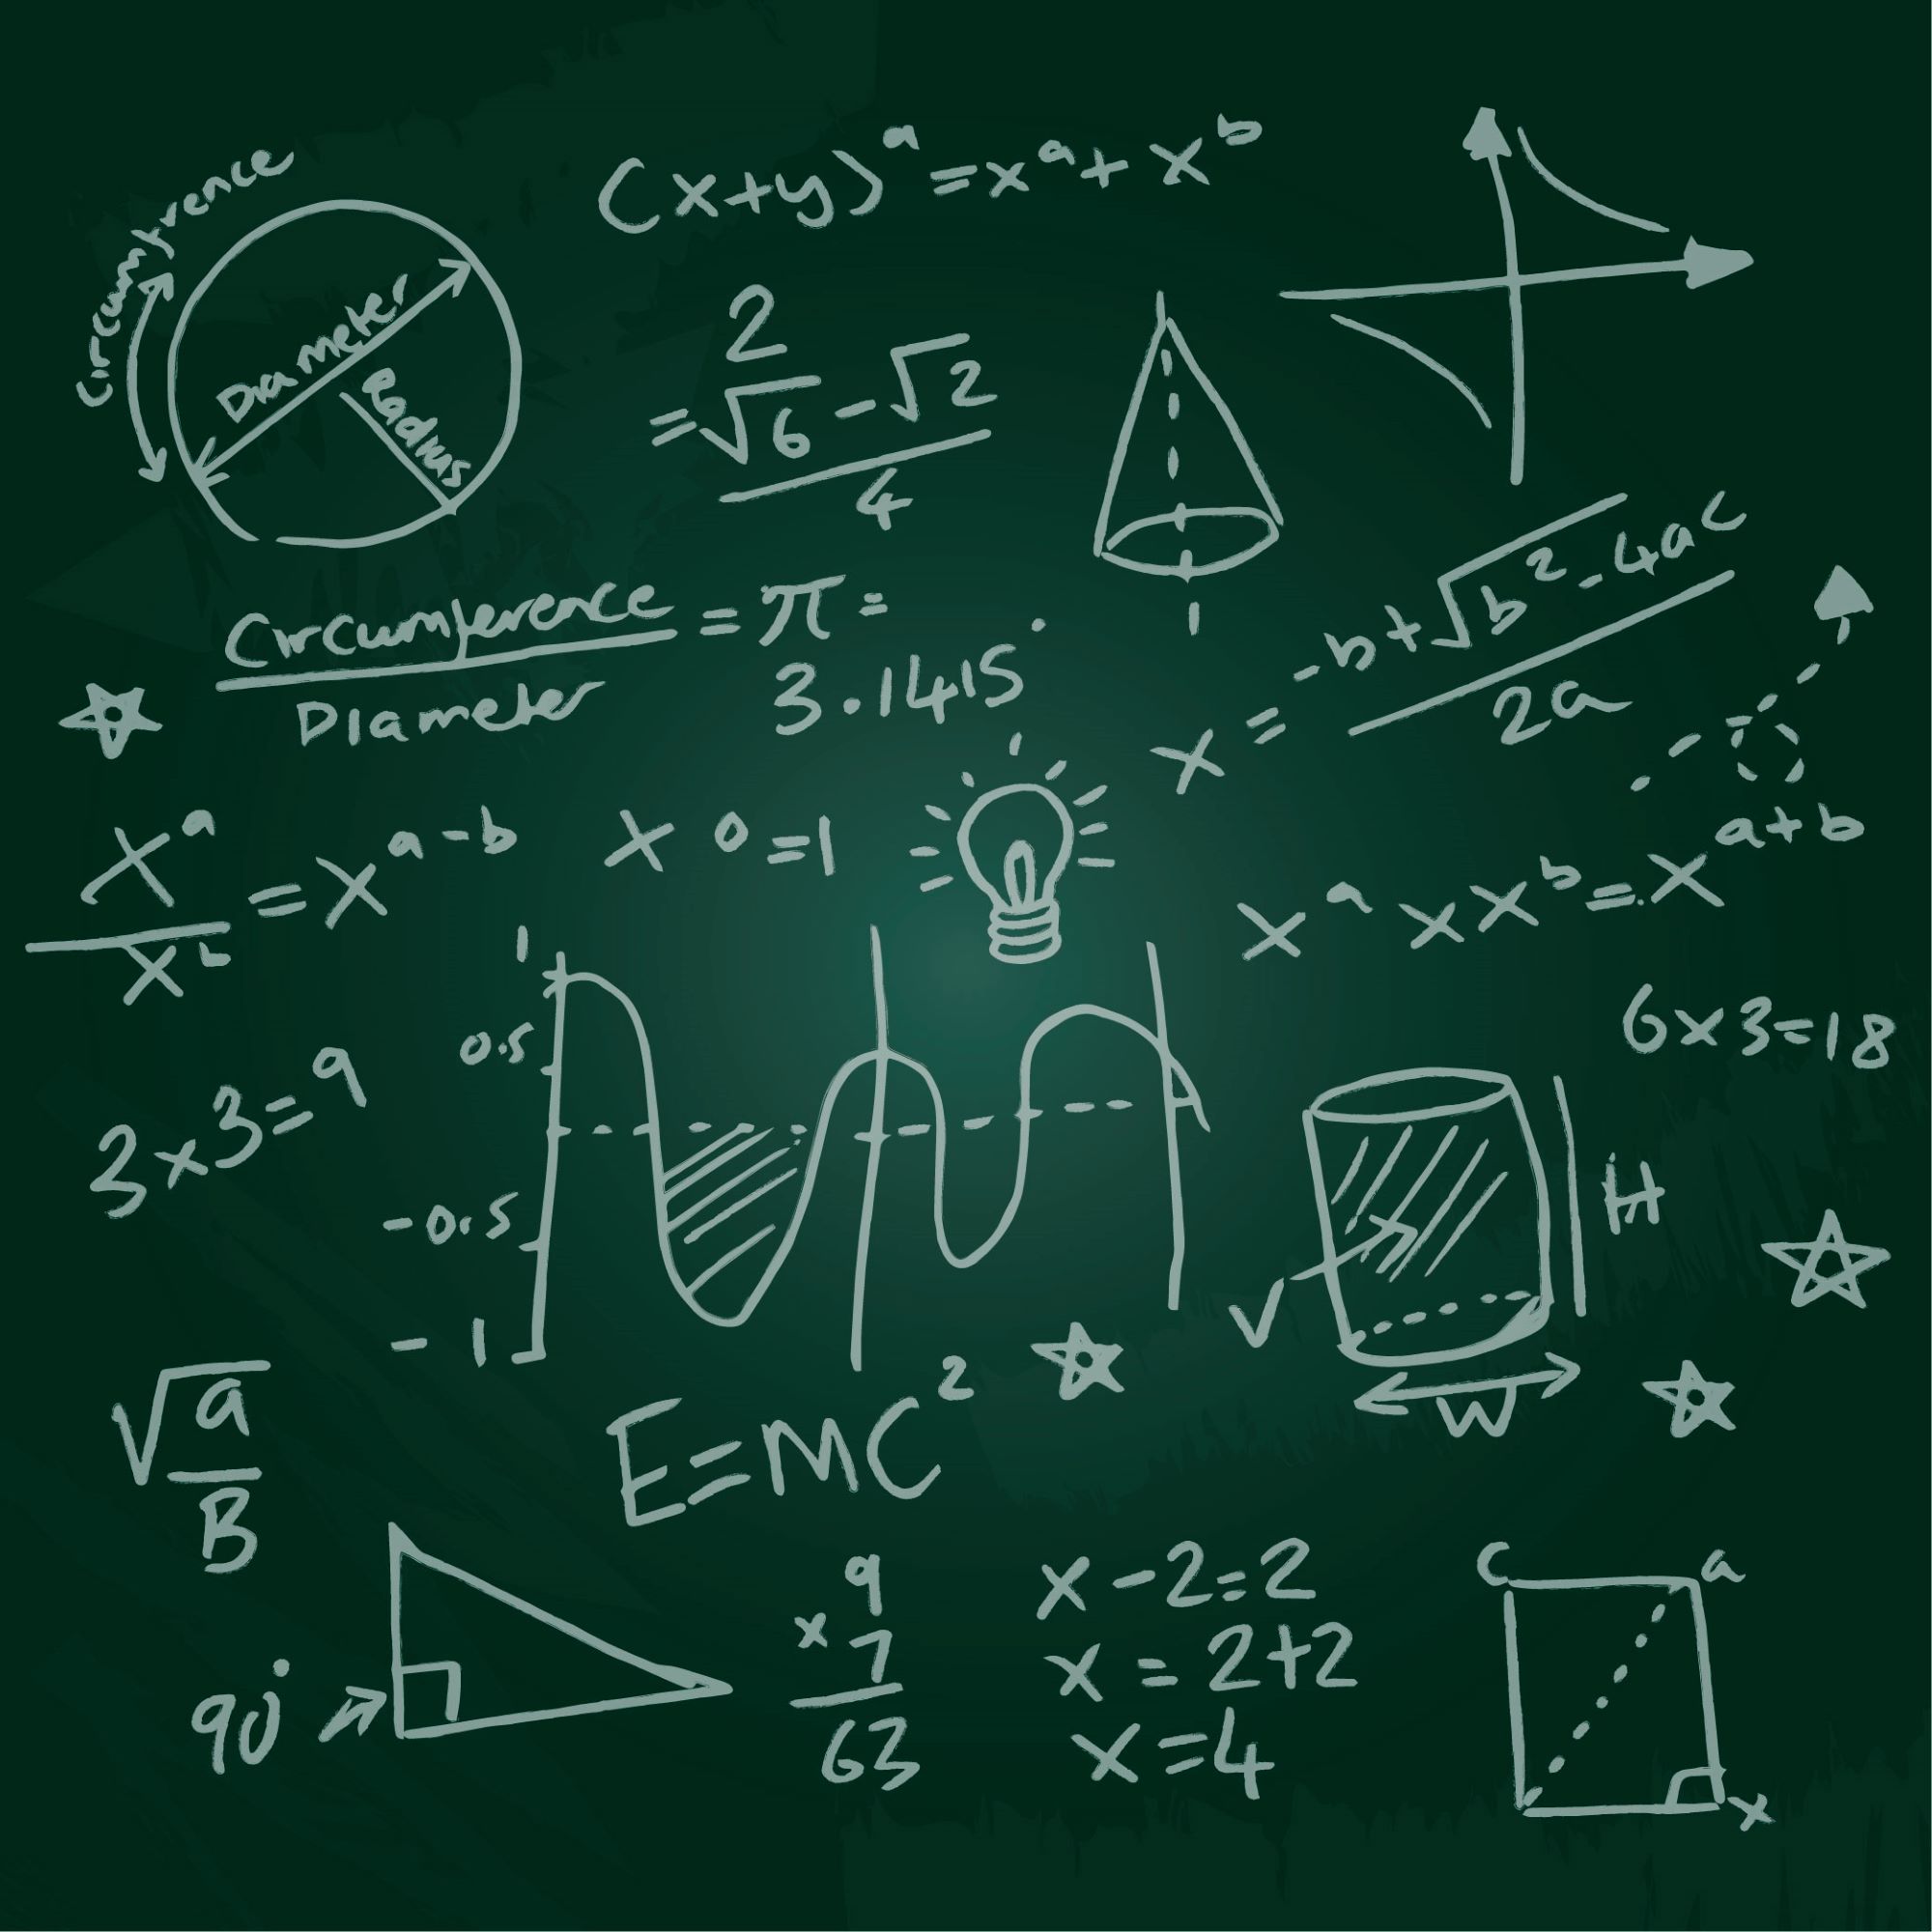 Circumference
Diameter
Radius
(x+y)ᵃ=xᵃ+xᵇ
2
=√6-√2
4
Circumference = π =
Diameter
3.1415
x = -b+√b²-4ac
2a
xᵃ
xᵇ
=xᵃ⁻ᵇ
x⁰=1
xᵃ x xᵇ=.xᵃ⁺ᵇ
3x3=9
1
0.5
-0.5
-1
6x3=18
H
V
W
√a
B
E=MC²
90°
9
x 7
63
x-2=2
x=2+2
x=4
c
a
x